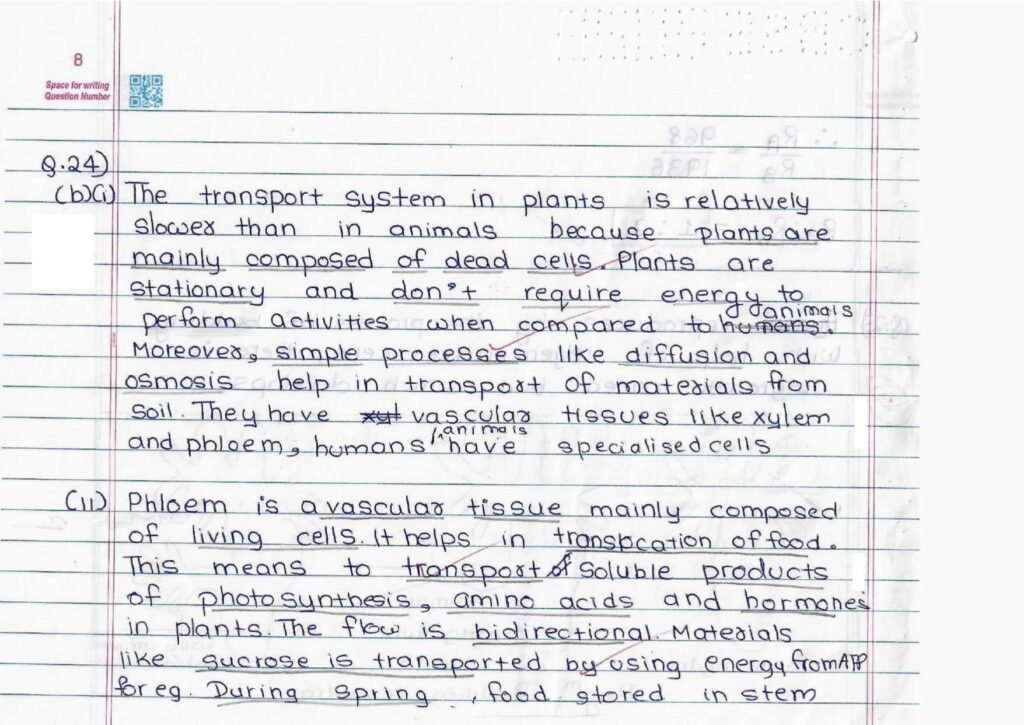 8
Space for writing
Question Number
Q.24)
(b)(i) The transport system in plants is relatively
slower than in animals because plants are
mainly composed of dead cells. Plants are
stationary and don't require energy to
perform activities when compared to humans. animals
Moreover, simple processes like diffusion and
osmosis help in transport of materials from
soil. They have xyl vascular tissues like xylem
and phloem, humans animals have specialised cells
(ii) Phloem is a vascular tissue mainly composed
of living cells. It helps in translocation of food.
This means to transport of soluble products
of photosynthesis, amino acids and hormones
in plants. The flow is bidirectional. Materials
like sucrose is transported by using energy from ATP
for eg. During spring, food stored in stem